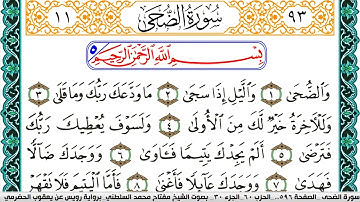 ١١ سُورَةُ الضُّحَى ٩٣
بِسْمِ اللَّهِ الرَّحْمَٰنِ الرَّحِيمِ
وَالضُّحَى ١ وَالَّيْلِ إِذَا سَجَى ٢ مَا وَدَّعَكَ رَبُّكَ وَمَا قَلَى ٣
وَلَلْآخِرَةُ خَيْرٌ لَّكَ مِنَ الْأُولَى ٤ وَلَسَوْفَ يُعْطِيكَ رَبُّكَ
فَتَرْضَى ٥ أَلَمْ يَجِدْكَ يَتِيمًا فَـَٔاوَى ٦ وَوَجَدَكَ ضَآلًّا
فَهَدَى ٧ وَوَجَدَكَ عَآئِلًا فَأَغْنَى ٨ فَأَمَّا الْيَتِيمَ فَلَا تَقْهَرْ
سورة الضحى . الصفحة ٥٩٦ . الحزب ٦٠ . الجزء ٣٠ . بصوت الشيخ مفتاح محمد السلطني برواية رويس عن يعقوب الحضرمي